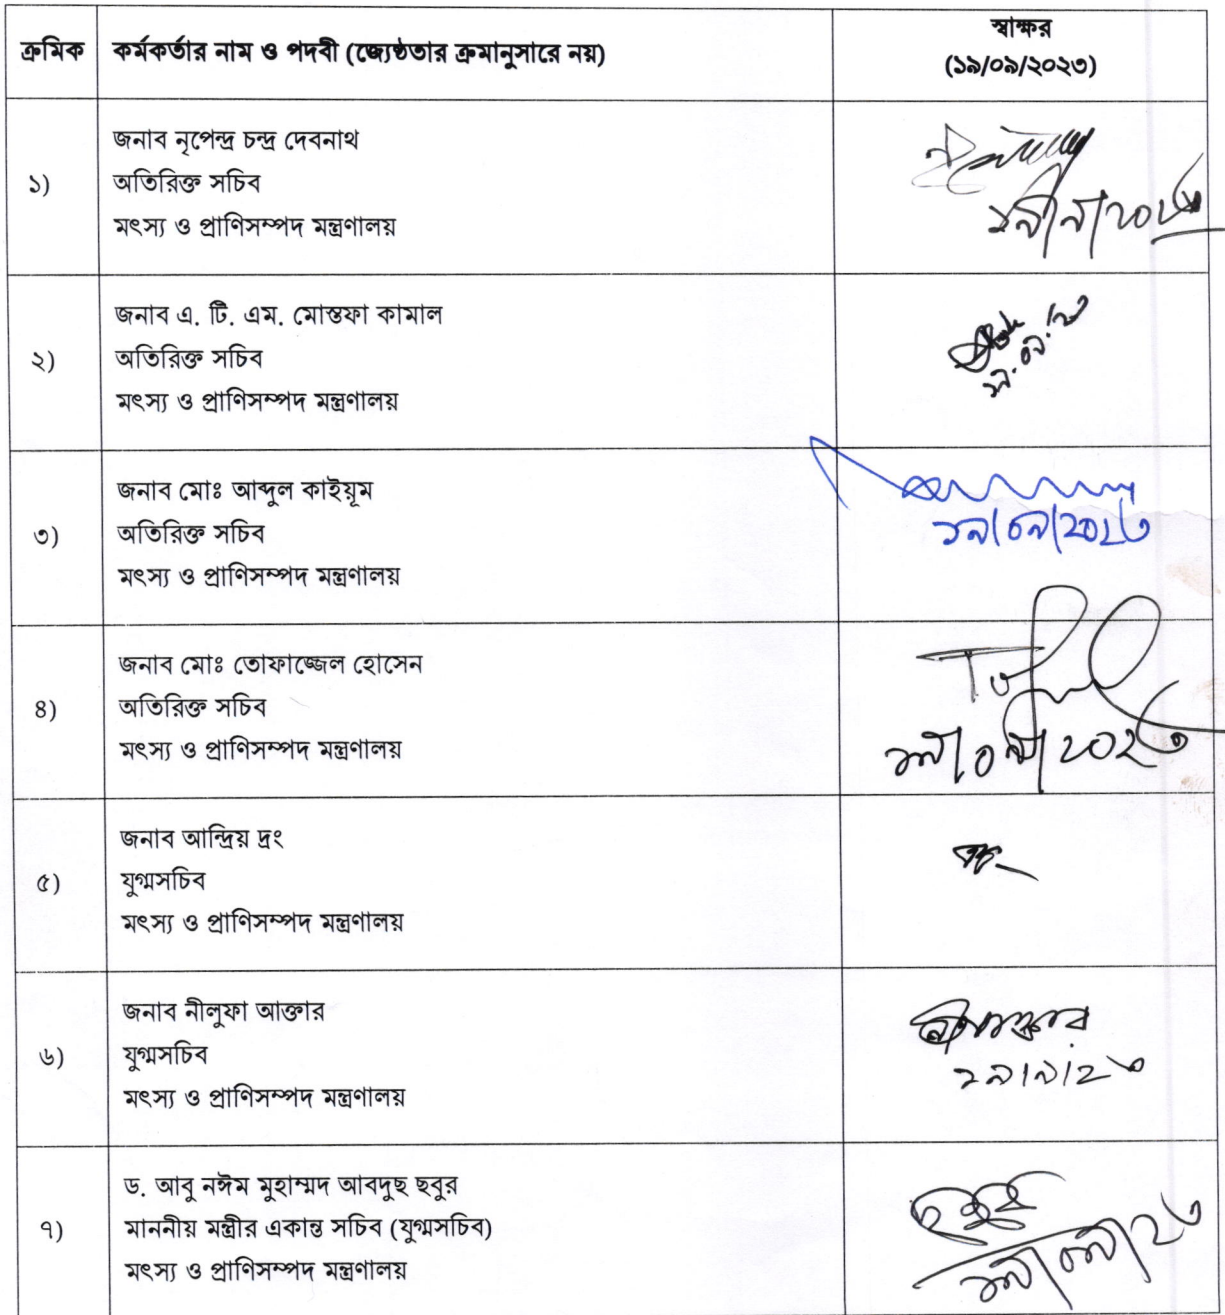 ক্রমিক
কর্মকর্তার নাম ও পদবী (জ্যেষ্ঠতার ক্রমানুসারে নয়)
স্বাক্ষর
(১৯/০৯/২০২৩)
১)
জনাব নৃপেন্দ্র চন্দ্র দেবনাথ
অতিরিক্ত সচিব
মৎস্য ও প্রাণিসম্পদ মন্ত্রণালয়
২)
জনাব এ. টি. এম. মোস্তফা কামাল
অতিরিক্ত সচিব
মৎস্য ও প্রাণিসম্পদ মন্ত্রণালয়
১৯.০৯.২৩
৩)
জনাব মোঃ আব্দুল কাইয়ূম
অতিরিক্ত সচিব
মৎস্য ও প্রাণিসম্পদ মন্ত্রণালয়
১৯/০৯/২০২৩
৪)
জনাব মোঃ তোফাজ্জেল হোসেন
অতিরিক্ত সচিব
মৎস্য ও প্রাণিসম্পদ মন্ত্রণালয়
১৯/০৯/২০২৩
৫)
জনাব আন্দ্রিয় দ্রং
যুগ্মসচিব
মৎস্য ও প্রাণিসম্পদ মন্ত্রণালয়
৬)
জনাব নীলুফা আক্তার
যুগ্মসচিব
মৎস্য ও প্রাণিসম্পদ মন্ত্রণালয়
১৯/৯/২৩
৭)
ড. আবু নঈম মুহাম্মদ আবদুছ ছবুর
মাননীয় মন্ত্রীর একান্ত সচিব (যুগ্মসচিব)
মৎস্য ও প্রাণিসম্পদ মন্ত্রণালয়
১৯/০৯/২৩